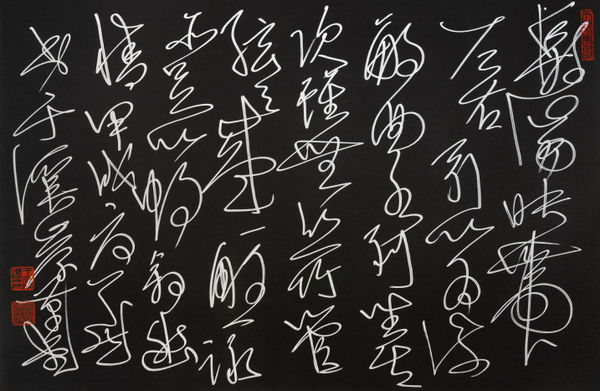 激湍映帶
左右引以為流
觴曲水列坐其
次雖無絲竹管
弦之盛一觴一詠
亦足以暢敘幽
情甲
書于